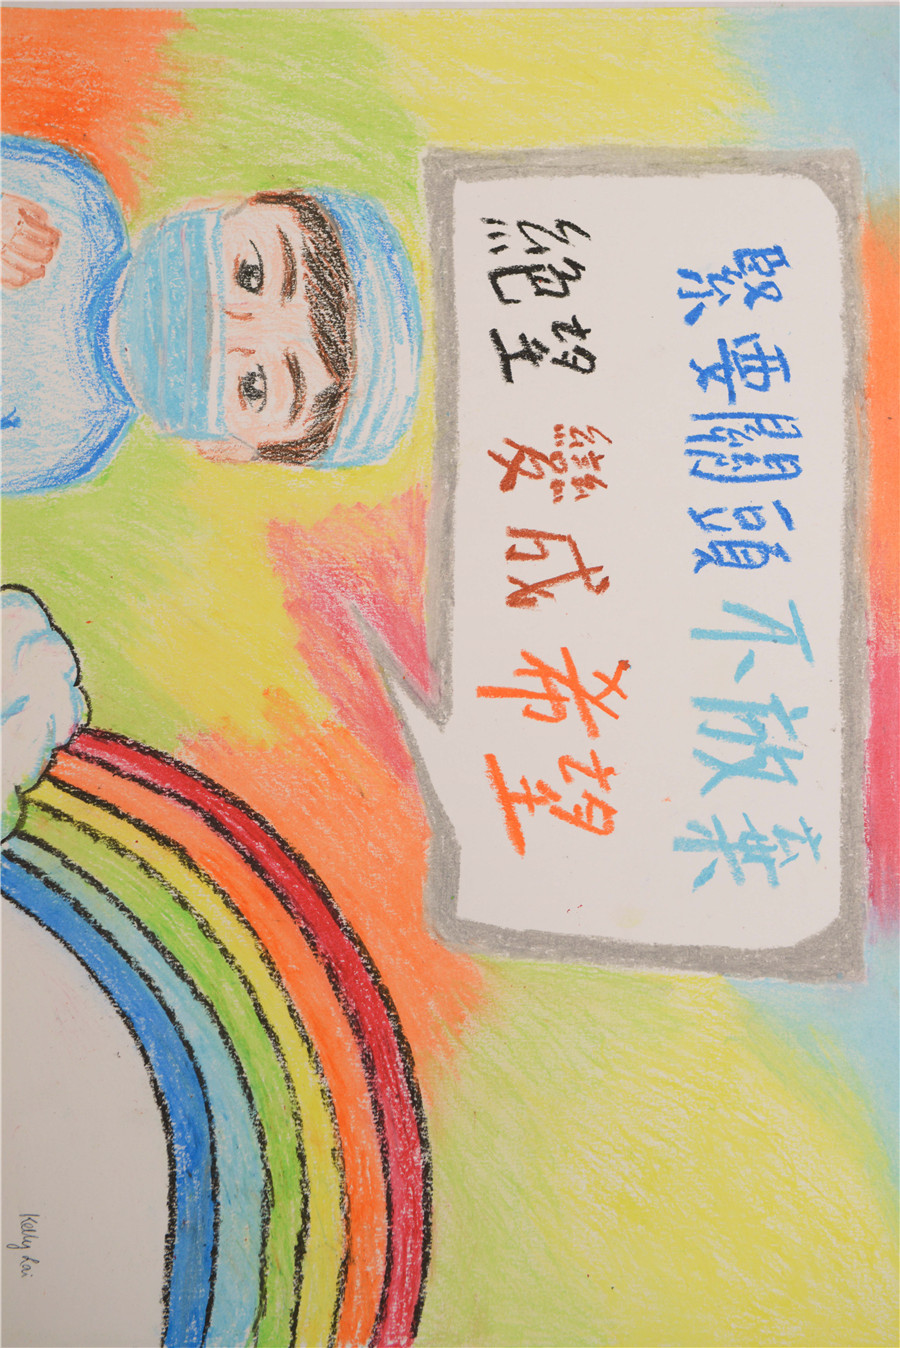 緊要關頭不放棄
絕望變成希望
Kelly Lai